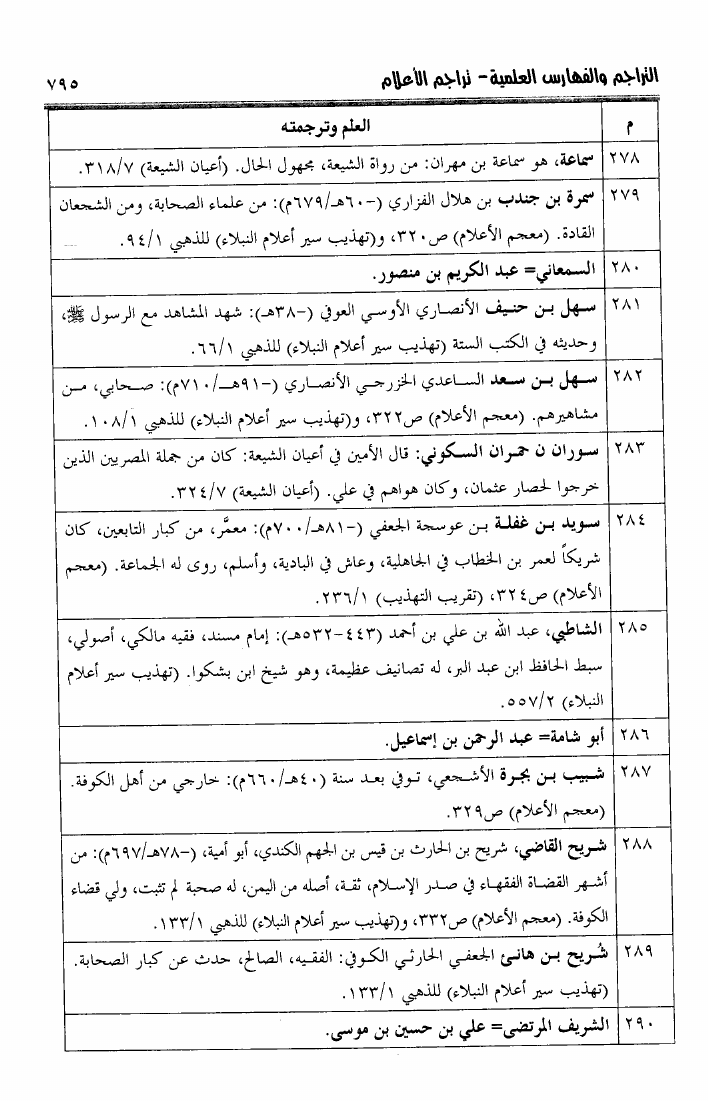 التراجم والفهارس العلمية - تراجم الأعلام ٧٩٥
م العلم وترجمته
٢٧٨ سماعة، هو سماعة بن مهران: من رواة الشيعة، مجهول الحال. (أعيان الشيعة) ٣١٨/٧.
٢٧٩ سمرة بن جندب بن هلال الفزاري (-٦٠هـ/٦٧٩م): من علماء الصحابة، ومن الشجعان
القادة. (معجم الأعلام) ص٣٢٠، و(تهذيب سير أعلام النبلاء) للذهبي ٩٤/١.
٢٨٠ السمعاني= عبد الكريم بن منصور.
٢٨١ سهل بن حنيف الأنصاري الأوسي العوفي (-٣٨هـ): شهد المشاهد مع الرسول ﷺ،
وحديثه في الكتب الستة (تهذيب سير أعلام النبلاء) للذهبي ٦٦/١.
٢٨٢ سهل بن سعد الساعدي الخزرجي الأنصاري (-٩١هـ/٧١٠م): صحابي، من
مشاهيرهم. (معجم الأعلام) ص٣٢٢، و(تهذيب سير أعلام النبلاء) للذهبي ١٠٨/١.
٢٨٣ سوران ن حمران السكوني: قال الأمين في أعيان الشيعة: كان من جملة المصريين الذين
خرجوا لحصار عثمان، وكان هواهم في علي. (أعيان الشيعة) ٣٢٤/٧.
٢٨٤ سويد بن غفلة بن عوسجة الجعفي (-٨١هـ/٧٠٠م): معمَّر، من كبار التابعين، كان
شريكاً لعمر بن الخطاب في الجاهلية، وعاش في البادية، وأسلم، روى له الجماعة. (معجم
الأعلام) ص٣٢٤، (تقريب التهذيب) ٢٣٦/١.
٢٨٥ الشاطبي، عبد الله بن علي بن أحمد (٤٤٣-٥٣٢هـ): إمام مسند، فقيه مالكي، أصولي،
سبط الحافظ ابن عبد البر، له تصانيف عظيمة، وهو شيخ ابن بشكوا. (تهذيب سير أعلام
النبلاء) ٥٥٧/٢.
٢٨٦ أبو شامة= عبد الرحمن بن إسماعيل.
٢٨٧ شبيب بن بجرة الأشجعي، توفي بعد سنة (٤٠هـ/٦٦٠م): خارجي من أهل الكوفة.
(معجم الأعلام) ص٣٢٩.
٢٨٨ شريح القاضي، شريح بن الحارث بن قيس بن الجهم الكندي، أبو أمية، (-٧٨هـ/٦٩٧م): من
أشهر القضاة الفقهاء في صدر الإسلام، ثقة، أصله من اليمن، له صحبة لم تثبت، ولي قضاء
الكوفة. (معجم الأعلام) ص٣٣٢، و(تهذيب سير أعلام النبلاء) للذهبي ١٣٣/١.
٢٨٩ شُريح بن هانئ الجعفي الحارثي الكوفي: الفقيه، الصالح، حدث عن كبار الصحابة.
(تهذيب سير أعلام النبلاء) للذهبي ١٣٣/١.
٢٩٠ الشريف المرتضى= علي بن حسين بن موسى.